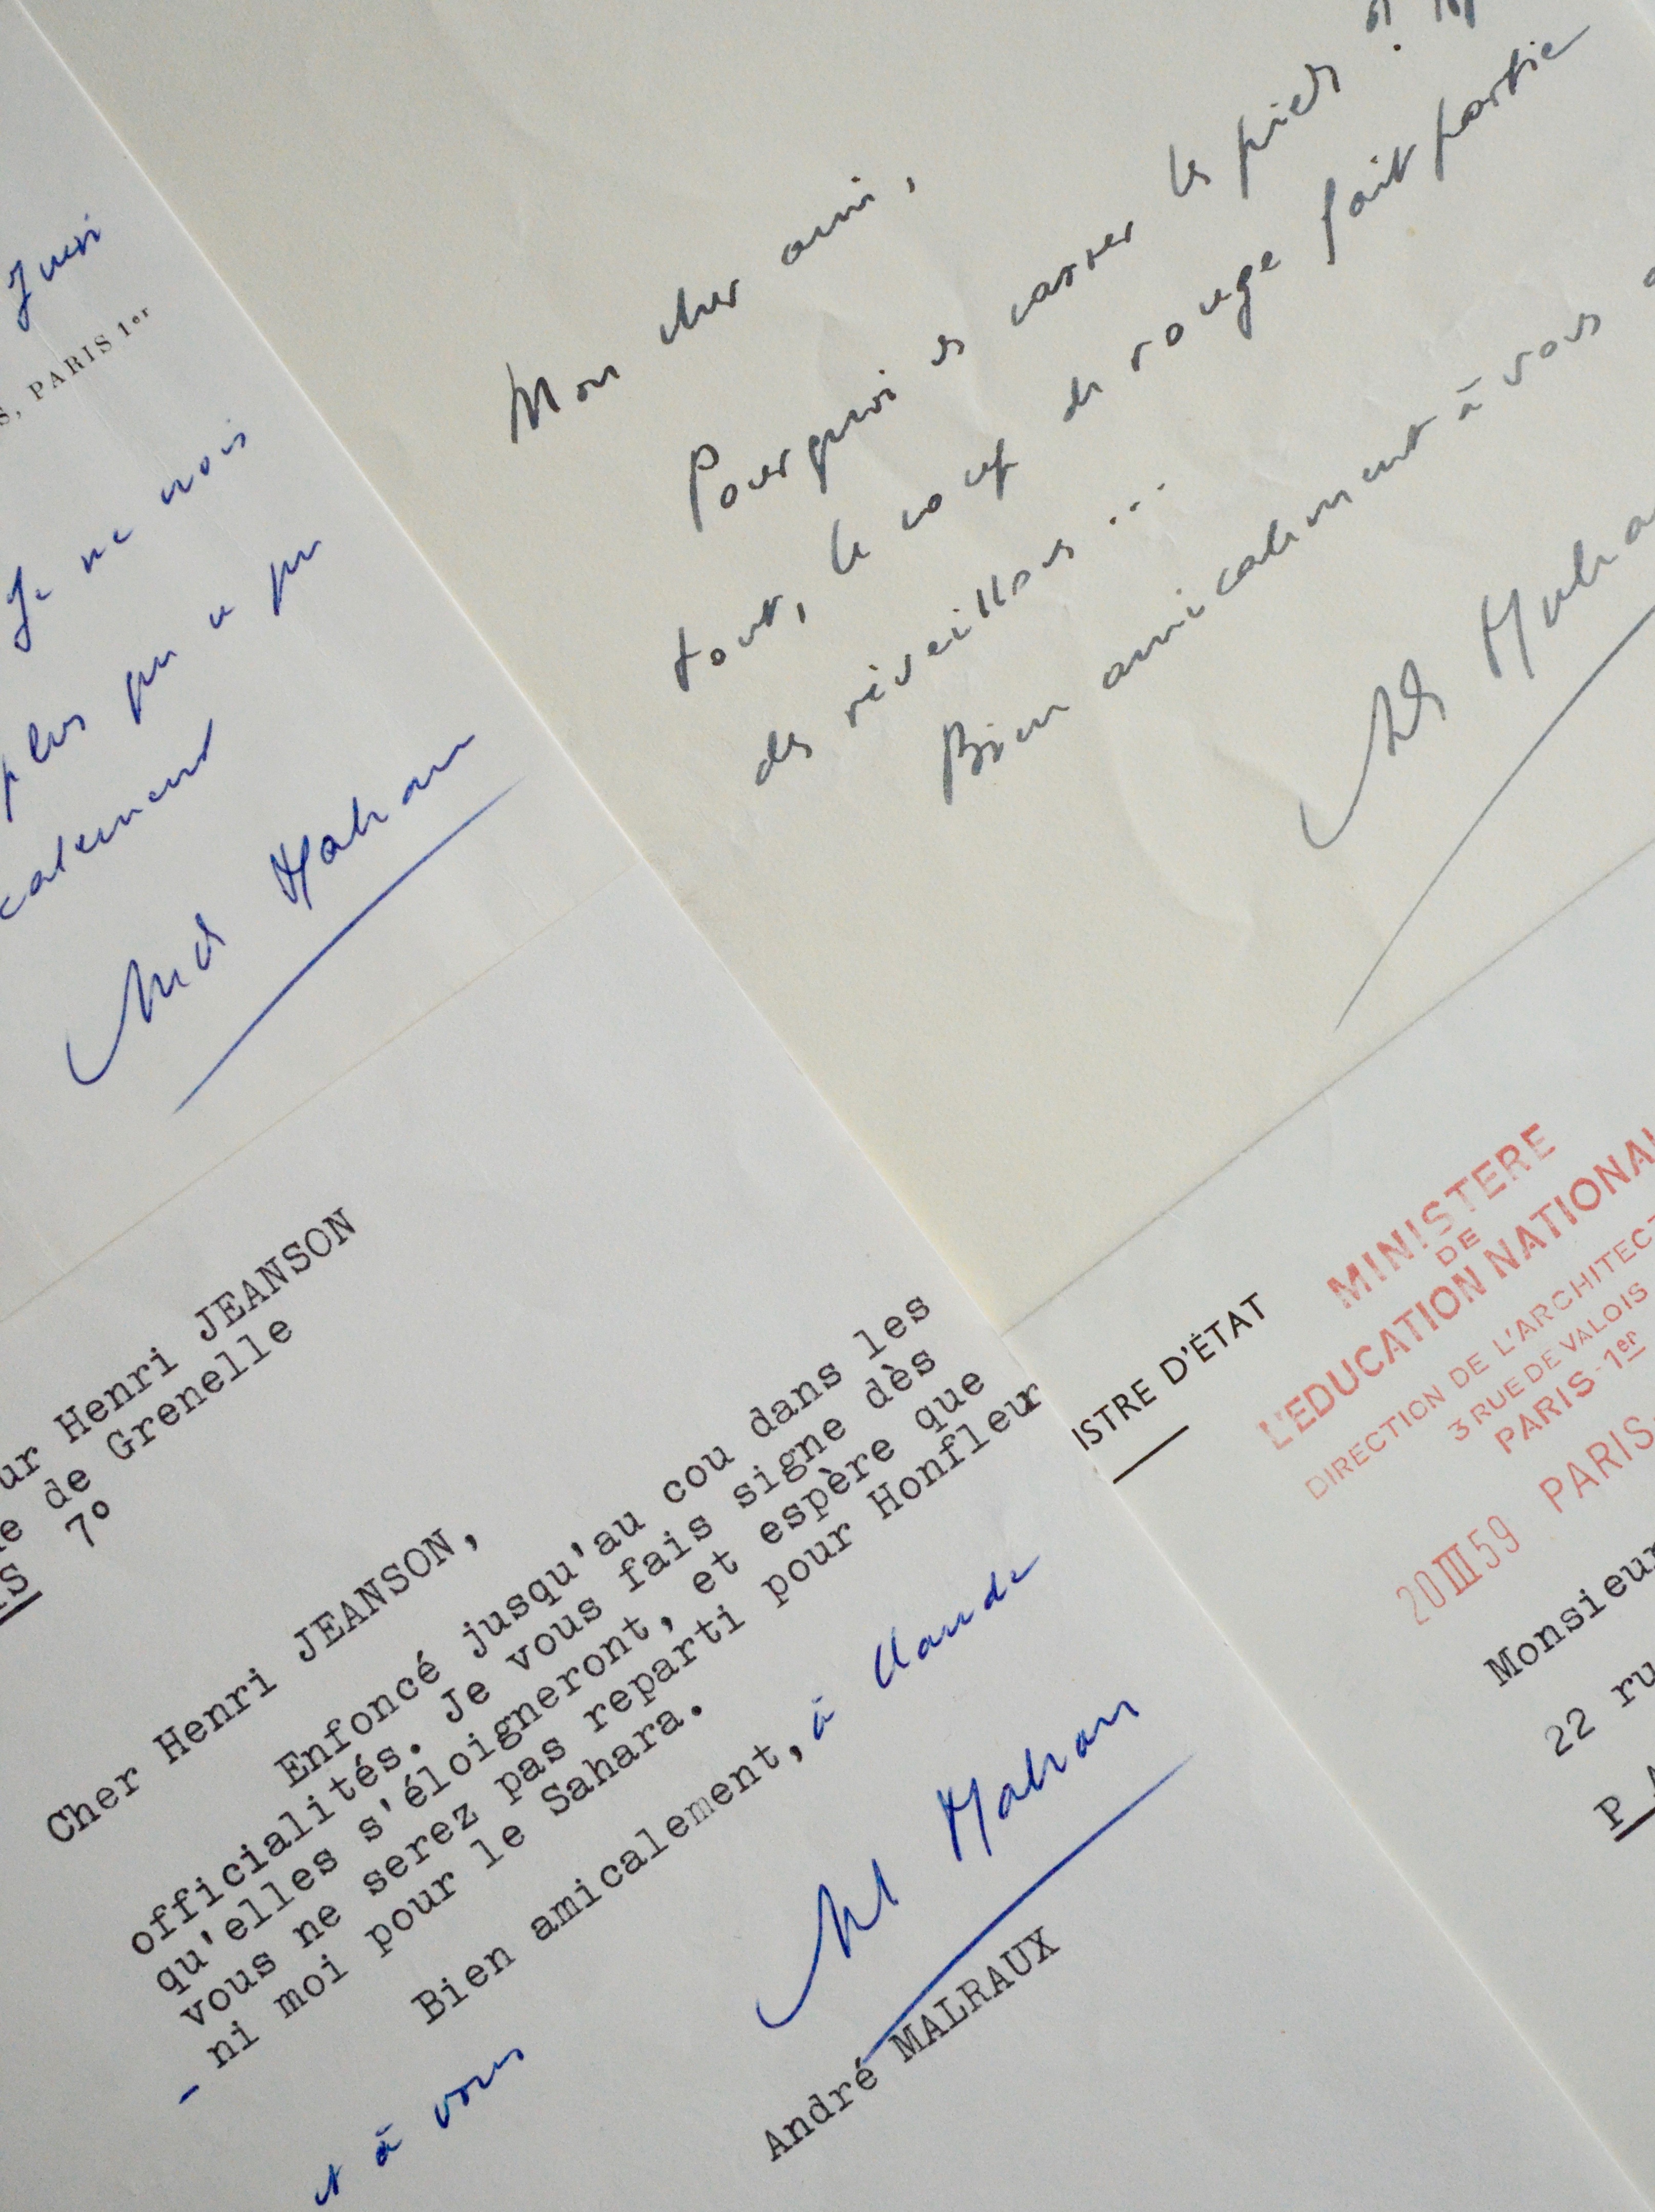 Juin
S, PARIS 1er
Je ne vois
plus
calement
André Malraux
Mon cher ami,
Pourquoi se casser les pieds ?
tout, le coup de rouge fait partie
des réveillons ...
Bien amicalement à vous
ur Henri JEANSON
e de Grenelle
IS 7º
Cher Henri JEANSON,
Enfoncé jusqu'au cou dans les
officialités. Je vous fais signe dès
qu'elles s'éloigneront, et espère que
vous ne serez pas reparti pour Honfleur
- ni moi pour le Sahara.
Bien amicalement, à Claude
et à vous
André MALRAUX
ISTRE D'ÉTAT
MINISTERE
DE
L'EDUCATION NATIONAL
DIRECTION DE L'ARCHITECT
3 RUE DE VALOIS
PARIS-1er
20 III 59 PARIS
Monsieur
22 ru
P A